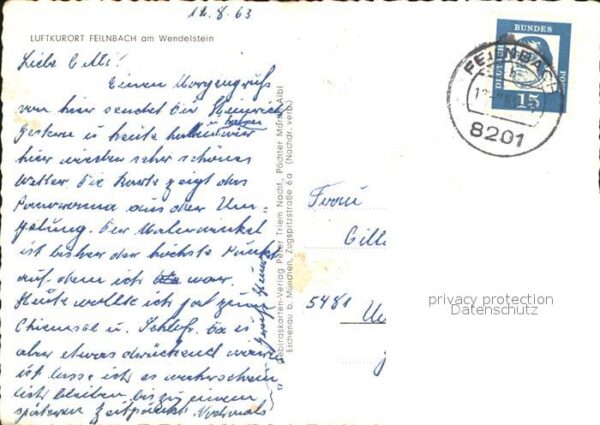 12.8.63
LUFTKURORT FEILNBACH am Wendelstein
Liebe Cilli!
Einen Morgengruß
von hier sendet Dir Heinrich
Gestern u heute haben wir
hier wieder sehr schönes
Wetter. Die Karte zeigt das
Panorama aus der Um-
gebung. Der Malerwinkel
ist bisher der höchste Punkt
auf dem ich war.
Heute wollte ich zum
Chiemsee u. Da es
aber etwas drückend warm
ist lasse ich es
bleiben bis zu einem
späteren Zeitpunkt Nochmals
Gebirgskarten-Verlag Peter Triem Nachf., Pächter Martin Albl
Eichenau b. München, Zugspitzstraße 6a (Nachdr. verb.)
DEUTSCHE BUNDES POST
15
FEILNBACH
b
8201
Frau
Cilli
5481
privacy protection
Datenschutz